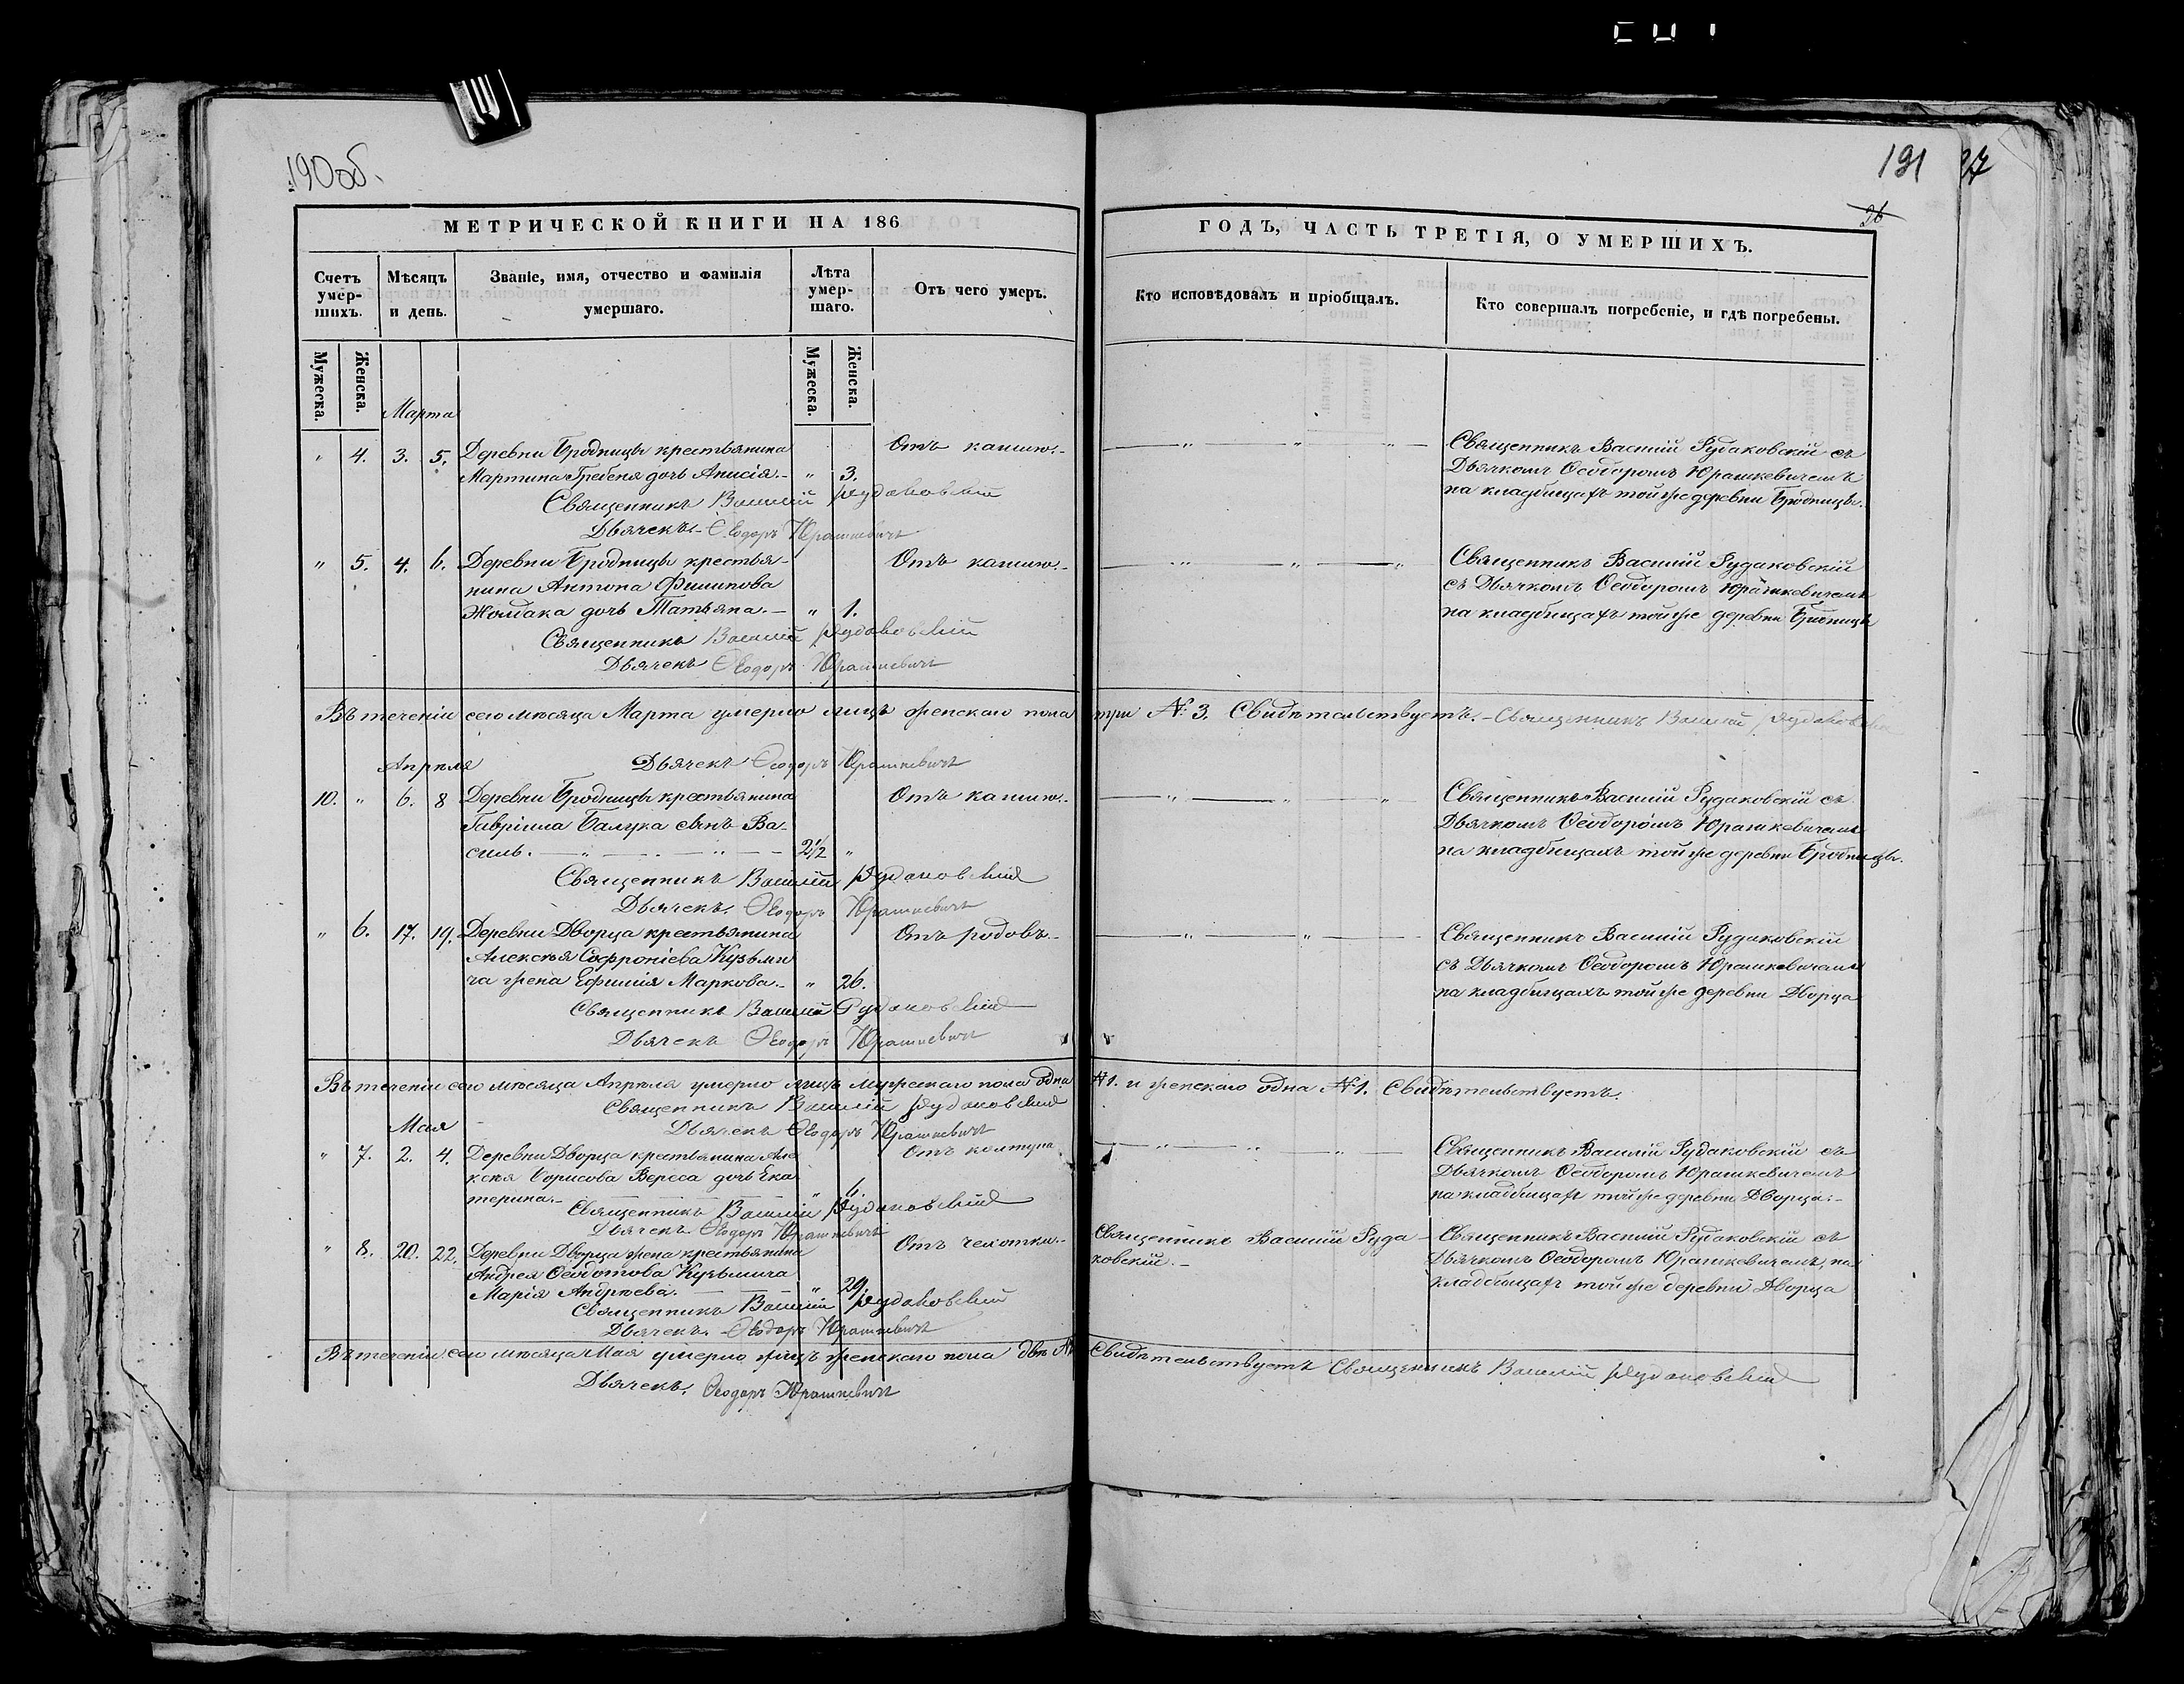 190об.
191
27
26
МЕТРИЧЕСКОЙ КНИГИ НА 186
ГОДЪ, ЧАСТЬ ТРЕТІЯ, О УМЕРШИХЪ.
Счетъ умер-шихъ.
Мѣсяцъ и день.
Званіе, имя, отчество и фамилія умершаго.
Лѣта умер-шаго.
Отъ чего умеръ.
Кто исповѣдовалъ и пріобщалъ.
Кто совершалъ погребеніе, и гдѣ погребены.
Мужеска. Женска.
Мужеска. Женска.
Марта
" 4. 3. 5. Деревни Бродницы крестьянина Отъ кашлю.
Мартина Гребеня дочь Анисія. " 3.
Священникъ Василій Рудаковскій
Дьячекъ Ѳеодоръ Юрашкевичъ
Священникъ Василій Рудаковскій съ
Дьячкомъ Ѳеодоромъ Юрашкевичемъ
на кладбищахъ той же деревни Бродницы.
" 5. 4. 6. Деревни Бродницы крестья- Отъ кашлю.
нина Антона Филипова
Жолдака дочь Татьяна. " 1.
Священникъ Василій Рудаковскій
Дьячекъ Ѳеодоръ Юрашкевичъ
Священникъ Василій Рудаковскій
съ Дьячкомъ Ѳеодоромъ Юрашкевичемъ
на кладбищахъ той же деревни Бродницы
Въ теченіи сего мѣсяца Марта умерло лицъ женскаго пола три №: 3. Свидѣтельствуетъ. Священникъ Василій Рудаковскій
Дьячекъ Ѳеодоръ Юрашкевичъ
Апрѣля
10. " 6. 8 Деревни Бродницы крестьянина Отъ кашлю.
Гавріила Балука сынъ Ва-
силь. 2½ "
Священникъ Василій Рудаковскій
Дьячекъ. Ѳеодоръ Юрашкевичъ
Священникъ Василій Рудаковскій съ
Дьячкомъ Ѳеодоромъ Юрашкевичемъ
на кладбищахъ той же деревни Бродницы.
" 6. 17. 19. Деревни Дворца крестьянина Отъ родовъ.
Алексѣя Софроніева Кузьми
ча жена Ефимія Маркова. " 26.
Священникъ Василій Рудаковскій
Дьячекъ Ѳеодоръ Юрашкевичъ
Священникъ Василій Рудаковскій
съ Дьячкомъ Ѳеодоромъ Юрашкевичемъ
на кладбищахъ той же деревни Дворца
Въ теченіи сего мѣсяца Апрѣля умерло лицъ мужескаго пола одна №1. и женскаго одна №1. Свидѣтельствуетъ.
Священникъ Василій Рудаковскій
Дьячекъ Ѳеодоръ Юрашкевичъ
Мая
" 7. 2. 4. Деревни Дворца крестьянина Але Отъ колтуна
ксѣя Борисова Вереса дочь Ека
терина. "
Священникъ Василій Рудаковскій
Дьячекъ Ѳеодоръ Юрашкевичъ
Священникъ Василій Рудаковскій съ
Дьячкомъ Ѳеодоромъ Юрашкевичемъ
на кладбищахъ той же деревни Дворца.
" 8. 20. 22. Деревни Дворца жена крестьянина Отъ чехотки.
Андрея Ѳеодотова Кузьмича
Марія Андреева. " 29.
Священникъ Василій Рудаковскій
Дьячекъ. Ѳеодоръ Юрашкевичъ
Священникъ Василій Руда-
ковскій.
Священникъ Василій Рудаковскій съ
Дьячкомъ Ѳеодоромъ Юрашкевичемъ, на
кладбищахъ той же деревни Дворца
Въ теченіи сего мѣсяца Мая умерло лицъ женскаго пола двѣ Свидѣтельствуетъ Священникъ Василій Рудаковскій
Дьячекъ. Ѳеодоръ Юрашкевичъ